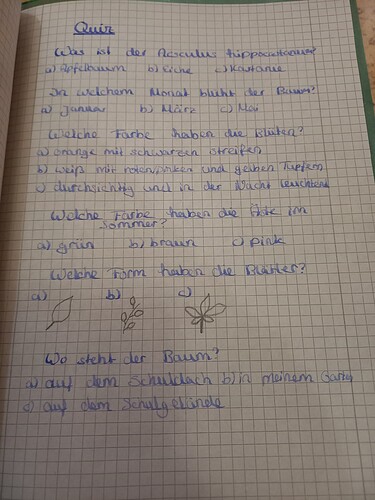 Quiz
Was ist der Aesculus hippocastanum?
a) Apfelbaum b) Eiche c) Kastanie
In welchem Monat blüht der Baum?
a) Januar b) März c) Mai
Welche Farbe haben die Blüten?
a) orange mit schwarzen streifen
b) weiß mit roten, und gelben Tupfern
c) durchsichtig und in der Nacht leuchtend
Welche Farbe haben die Äste im
Sommer?
a) grün b) braun c) pink
Welche Form haben die Blätter?
a) b) c)
Wo steht der Baum?
a) auf dem Schuldach b) in meinem Garten
c) auf dem Schulgelände